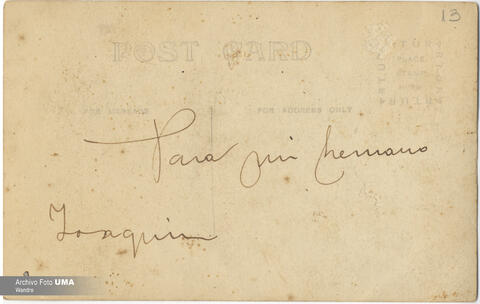 13
POST CARD
FOR ADDRESS ONLY
Para mi hermano
Joaquin
Archivo Foto UMA
Wandre